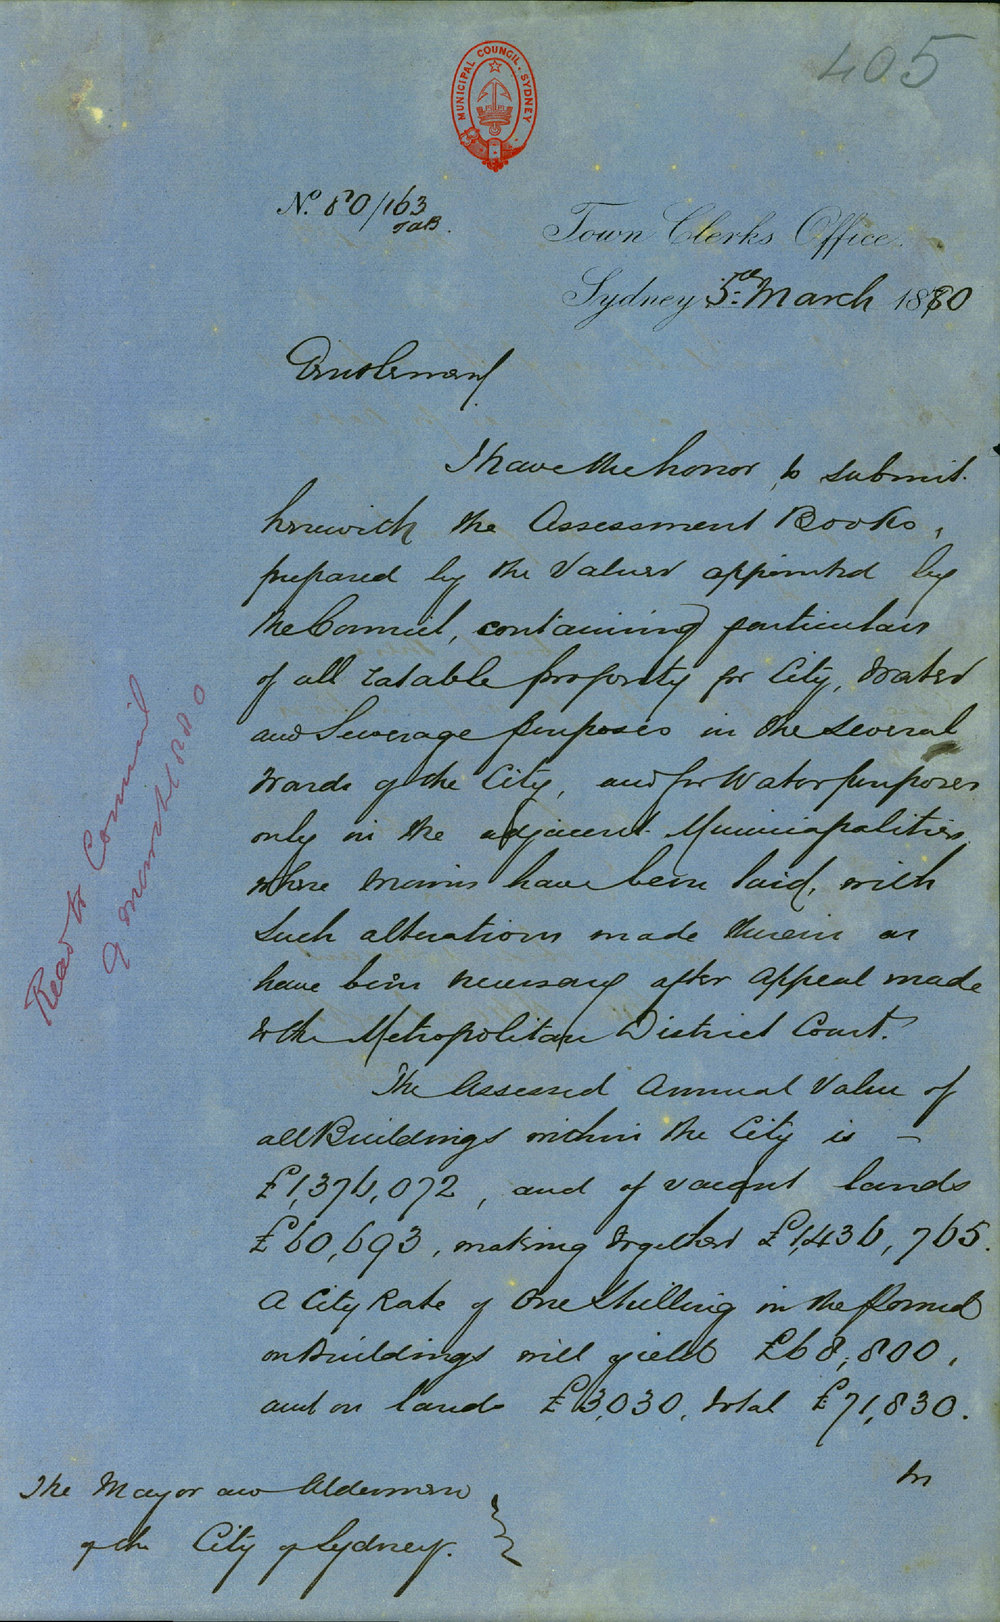 405
MUNICIPAL COUNCIL. SYDNEY
No. 80/163
Town Clerks Office.
Sydney 5th March 1880
Gentlemen,
I have the honor to submit
herewith the Assessment Books,
prepared by the Valuers appointed by
the Council, containing particulars
of all ratable property for City, Water
and Sewerage purposes in the several
Wards of the City, and for Water purposes
only in the adjacent Municipalities
where mains have been laid, with
such alterations made therein as
have been necessary after appeal made
to the Metropolitan District Court.
The Assessed Annual Value of
all Buildings within the City is —
£1,376,072, and of vacant lands
£60,693, making together £1,436,765.
A City Rate of One Shilling in the pound
on Buildings will yield £68,800,
and on lands £3,030, total £71,830.
In
The Mayor and Aldermen
of the City of Sydney.
Read to Council
9 March 1880